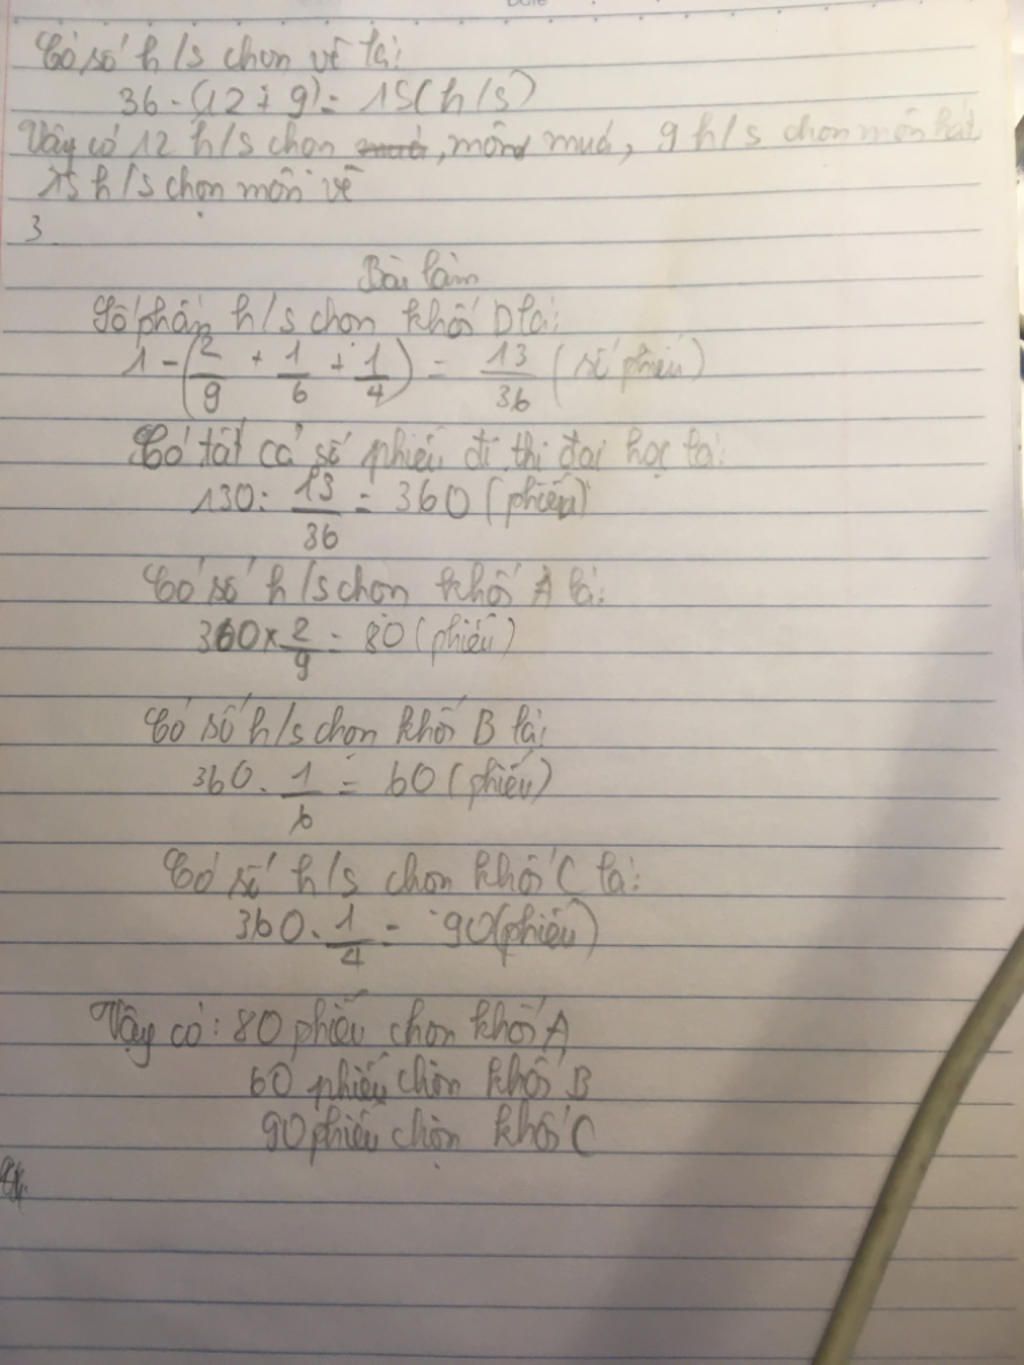 Có số h/s chọn vẽ là:
36 - (12 + 9) = 15 (h/s)
Vậy có 12 h/s chọn, môn múa, 9 h/s chọn môn hát
15 h/s chọn môn vẽ
3
Bài làm
Số phần h/s chọn khối D là:
1 - (2/9 + 1/6 + 1/4) = 13/36 (số phiếu)
Có tất cả số phiếu đi thi đại học là:
130 : 13/36 = 360 (phiếu)
Có số h/s chọn khối A là:
360 × 2/9 = 80 (phiếu)
Có số h/s chọn khối B là:
360 . 1/6 = 60 (phiếu)
Có số h/s chọn khối C là:
360 . 1/4 = 90 (phiếu)
Vậy có: 80 phiếu chọn khối A
60 phiếu chọn khối B
90 phiếu chọn khối C